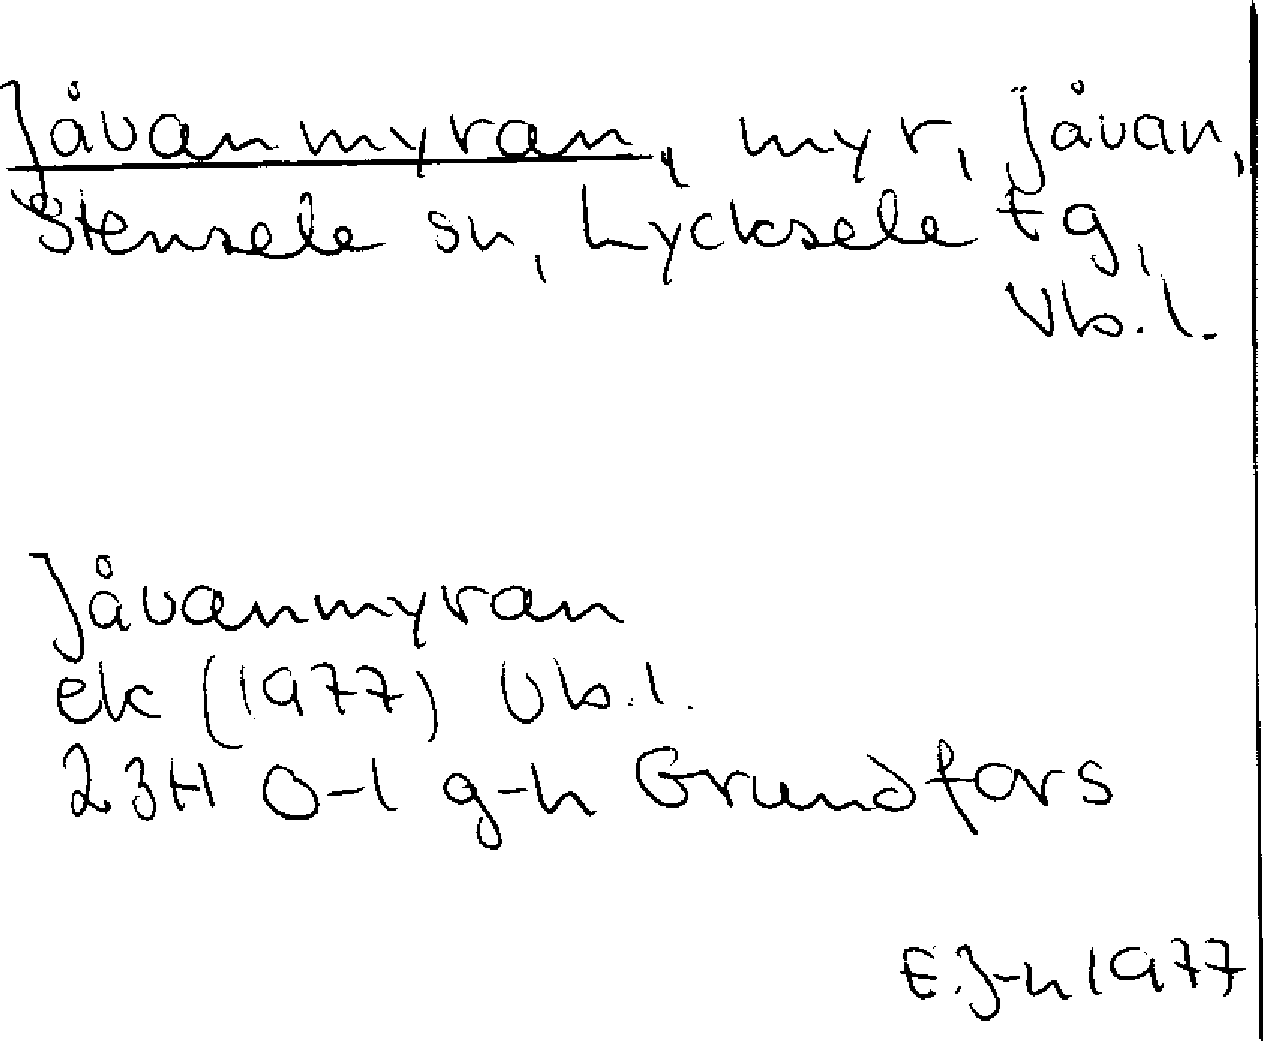 Jåvanmyran, myr, Jåvan,
Stensele sn, Lycksele tg,
Vb.l.
Jåvanmyran
ek (1977) Vb.l.
23H 0-1 g-h Grundfors
E.J-n 1977